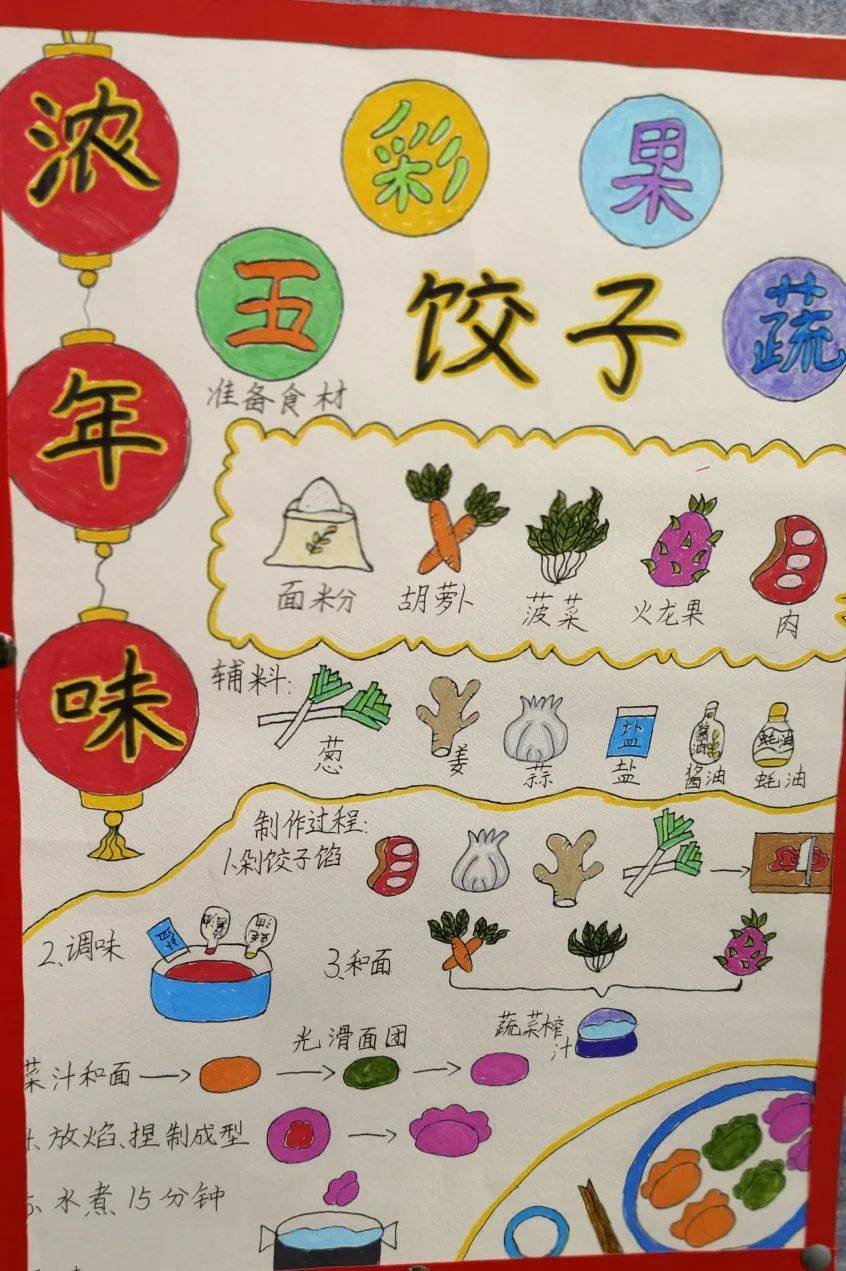 浓年味
五彩果蔬
饺子
准备食材
面粉 胡萝卜 菠菜 火龙果 肉
辅料:
盐 酱油 蚝油
葱 姜 蒜 盐 酱油 蚝油
制作过程:
1.剁饺子馅
2、调味
3、和面
蔬菜榨
汁
光滑面团
菜汁和面
放焰、捏制成型
水煮15分钟